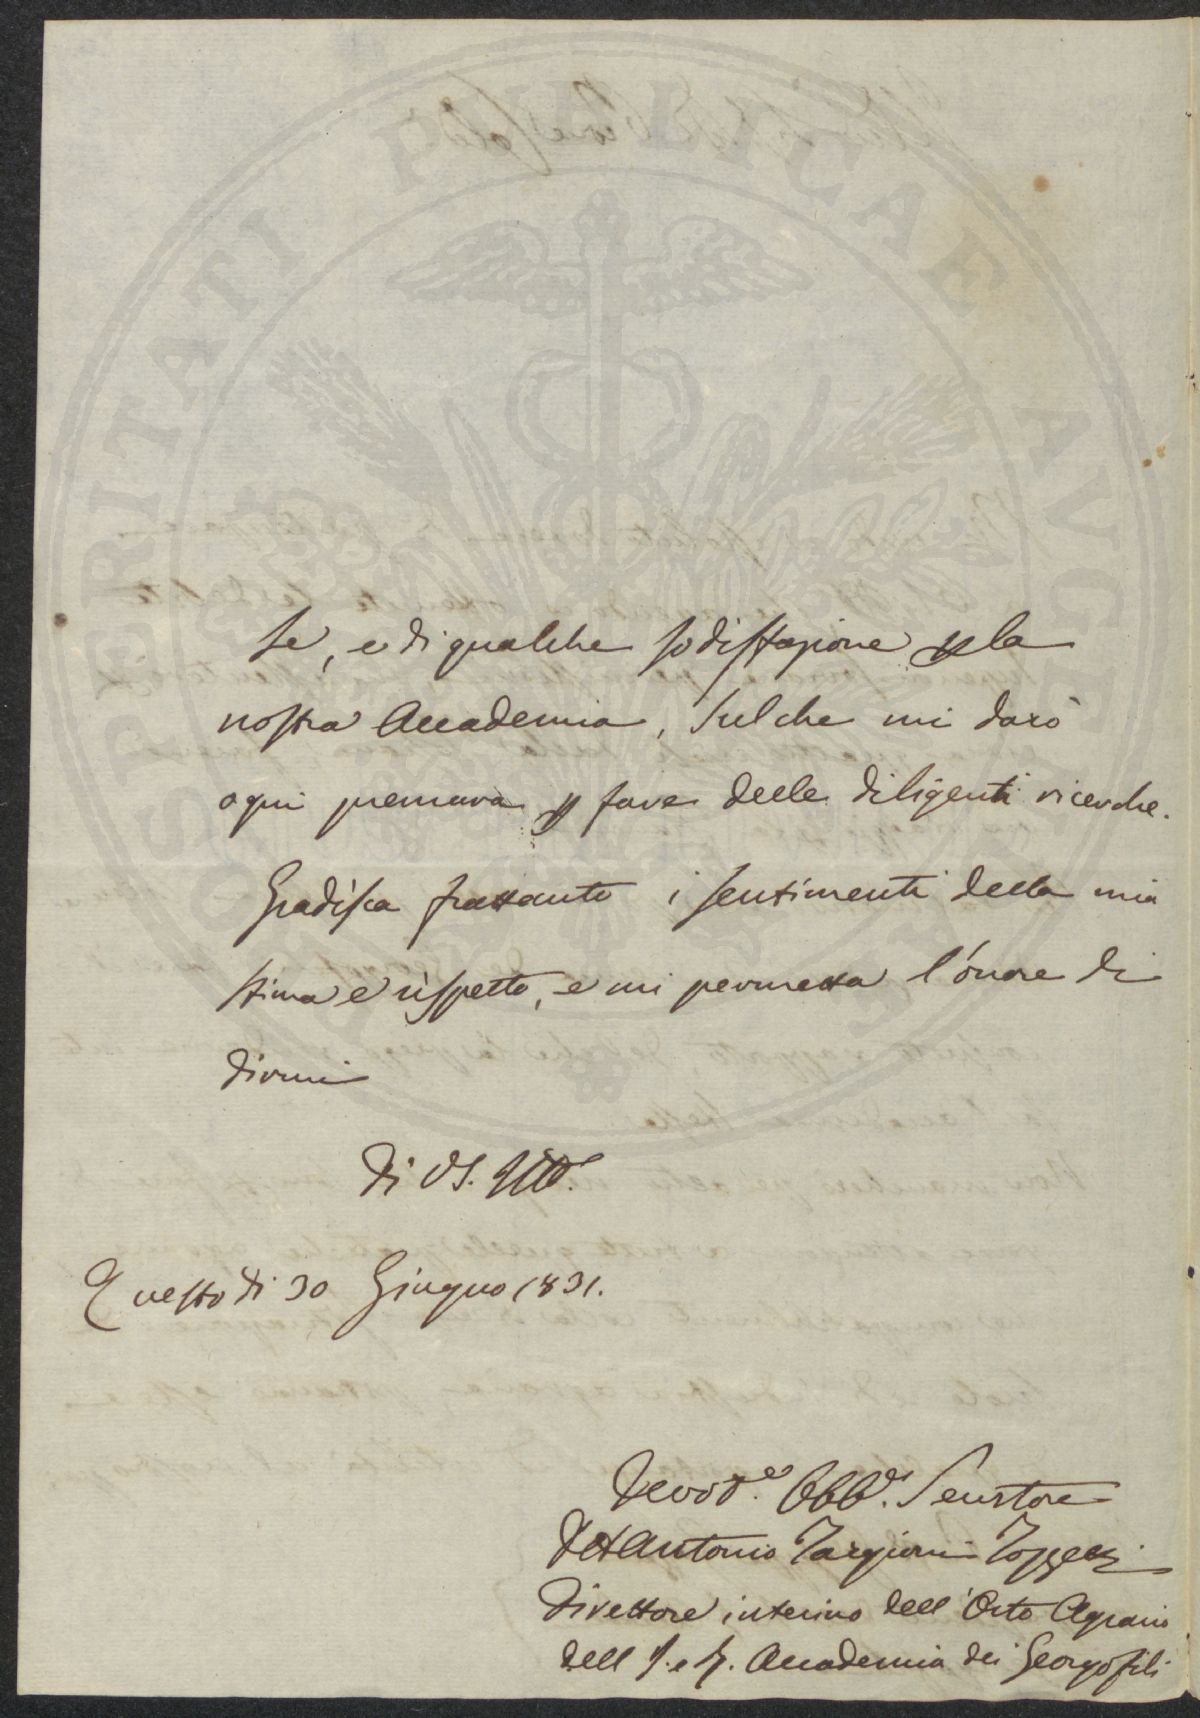 PROSPERITATI PVBLICAE AVGENDAE
se, e di qualche sodisfazione per la
nostra Accademia, sul che mi darò
ogni premura per fare delle diligenti ricerche.
Gradisca frattanto i sentimenti della mia
stima e rispetto, e mi permetta l'onore di
dirmi
Di VS. Ill.
Questo dì 30 Giugno 1831.
Devot.o Obb.o Servitore
Dott Antonio Targioni Tozzetti
Direttore interino dell'Orto Agrario
dell I. e R. Accademia dei Georgofili